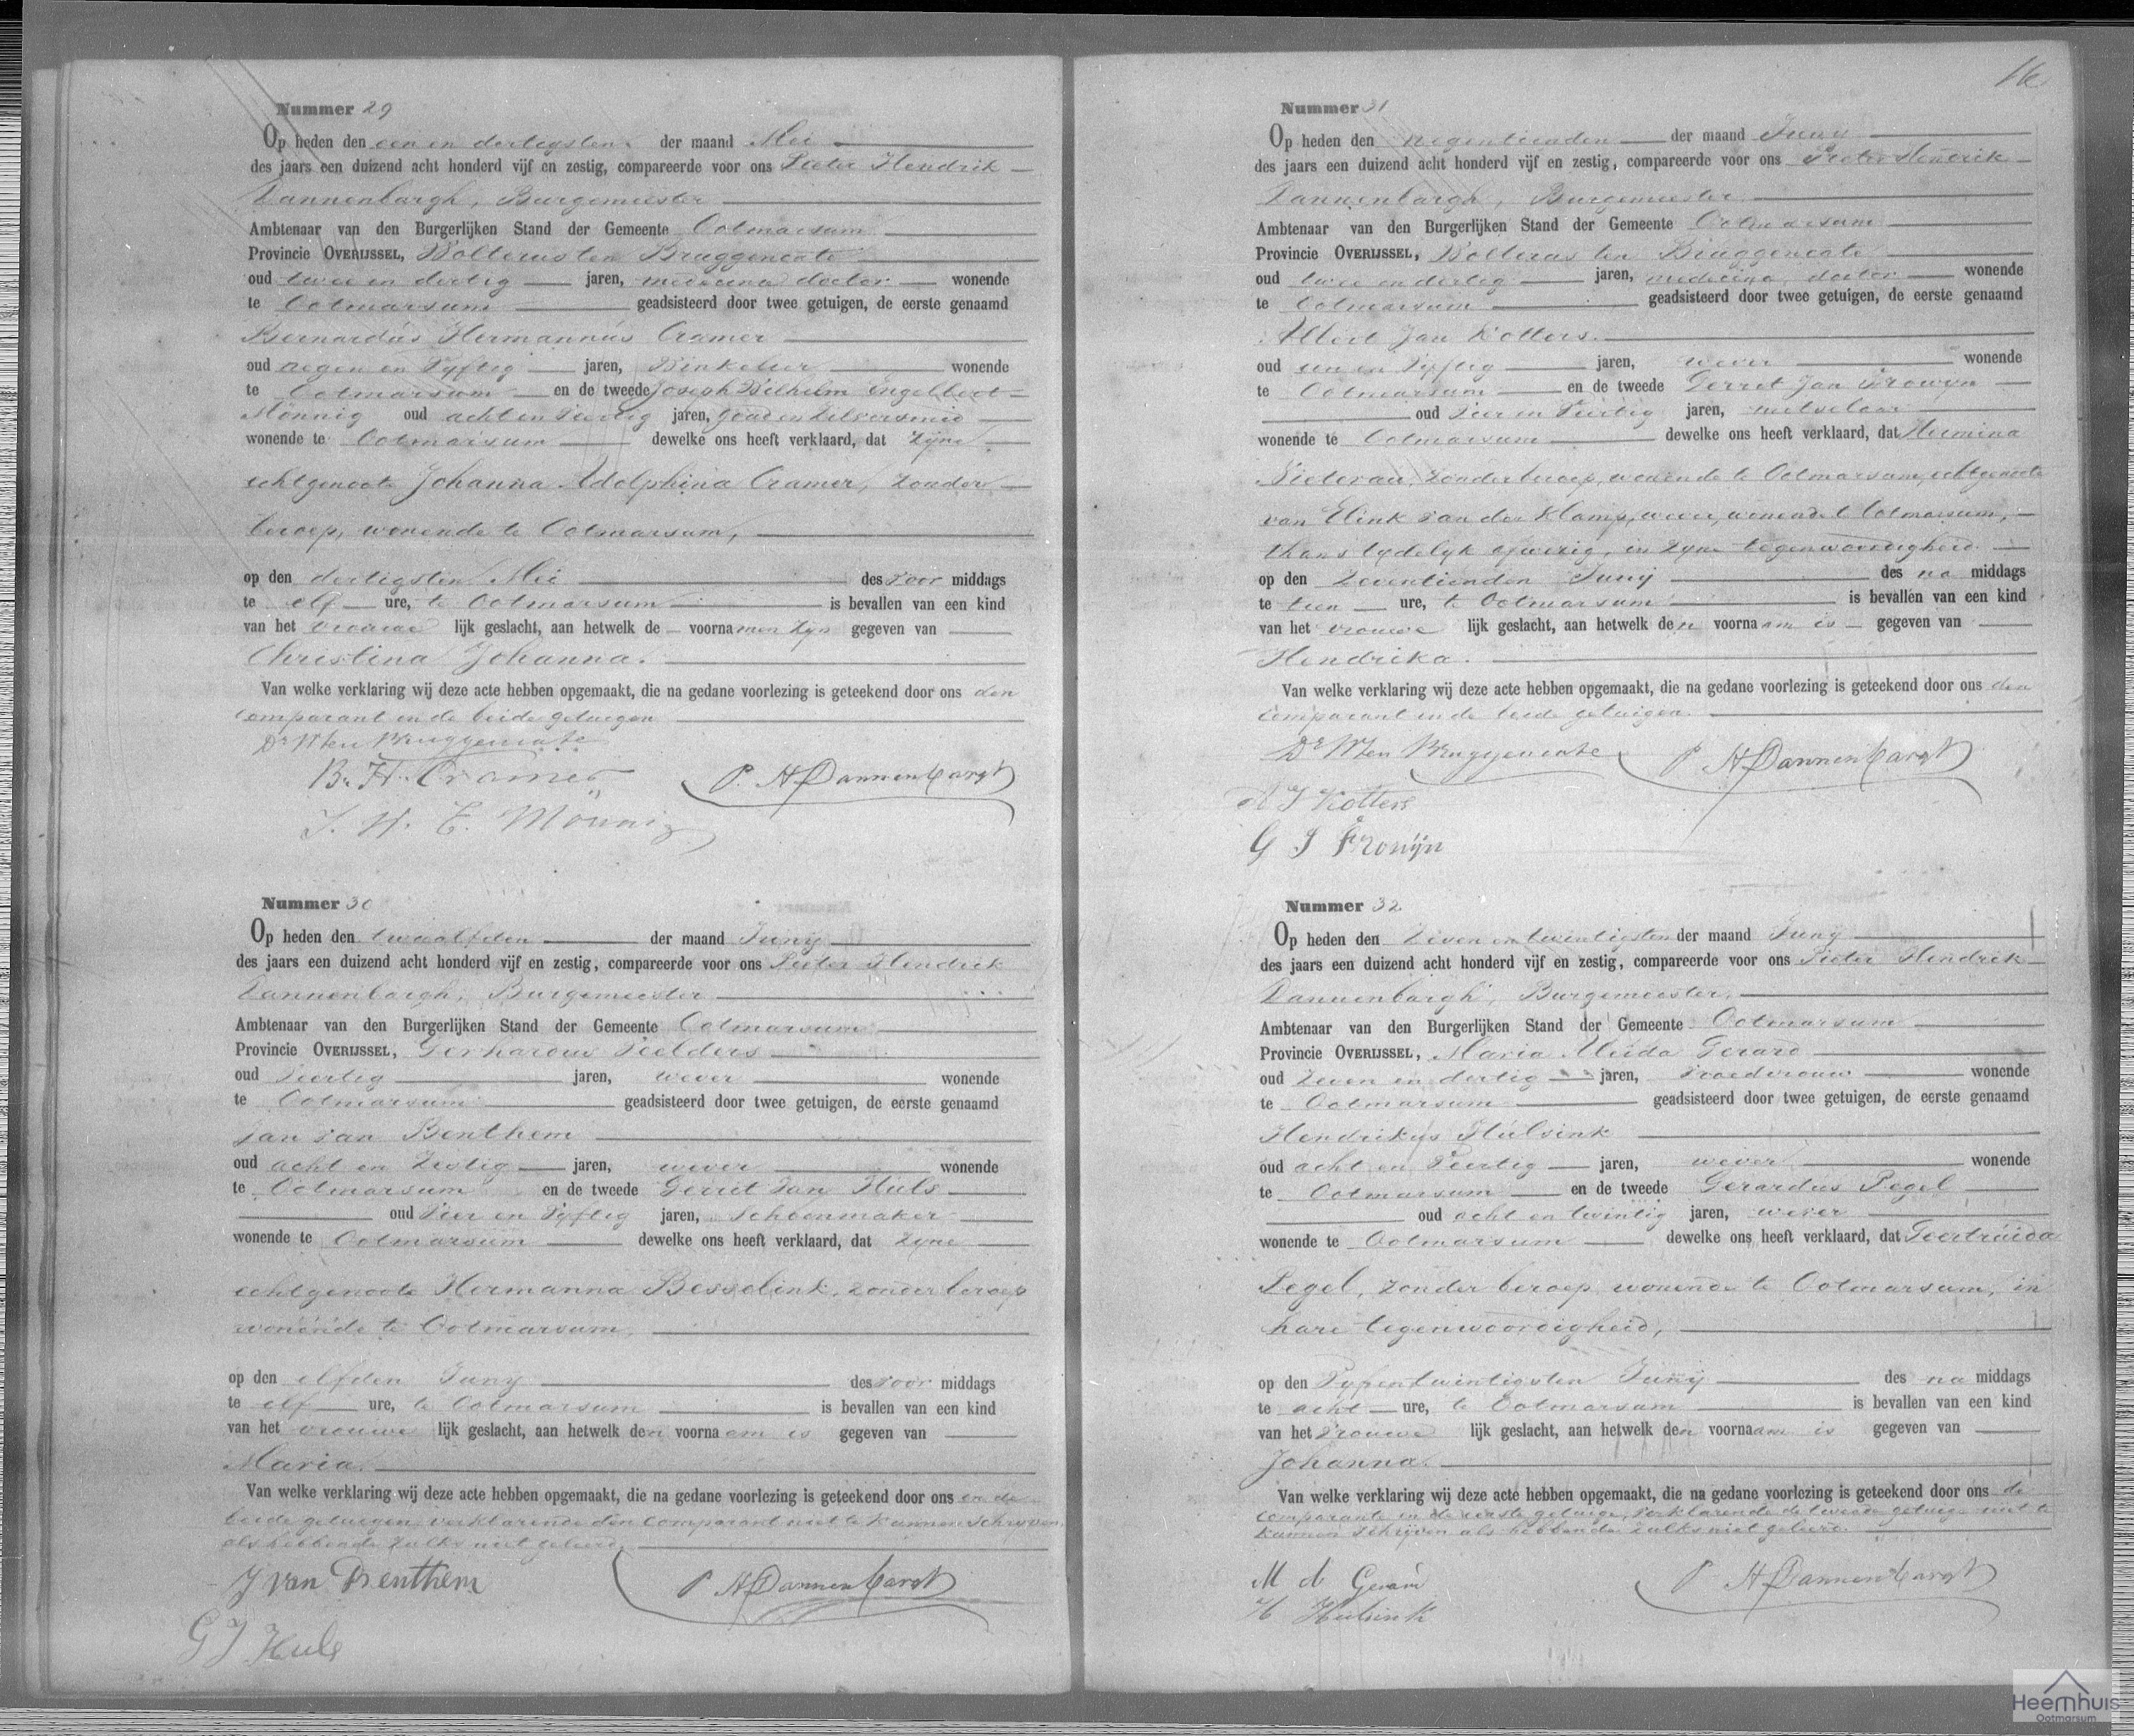 Nummer 29
Op heden den een en dertigsten der maand Mei
des jaars een duizend acht honderd vijf en zestig, compareerde voor ons Pieter Hendrik
Dannenbargh, Burgemeester
Ambtenaar van den Burgerlijken Stand der Gemeente Ootmarsum
Provincie OVERIJSSEL, Wolterus ten Bruggencate
oud twee en dertig jaren, medicina doctor wonende
te Ootmarsum geadsisteerd door twee getuigen, de eerste genaamd
Bernardus Hermannus Cramer
oud negen en vyftig jaren, Winkelier wonende
te Ootmarsum en de tweede Joseph Wilhelm Engelbert
Mönnig oud acht en veertig jaren, goud en zilversmid
wonende te Ootmarsum dewelke ons heeft verklaard, dat zyne
echtgenoote Johanna Adolphina Cramer, zonder
beroep, wonende te Ootmarsum,
op den dertigsten Mei des voor middags
te elf ure, te Ootmarsum is bevallen van een kind
van het vrouwe lijk geslacht, aan hetwelk de voornamen zyn gegeven van
Christina Johanna.
Van welke verklaring wij deze acte hebben opgemaakt, die na gedane voorlezing is geteekend door ons den
comparant en de beide getuigen
Dr W ten Bruggencate
B. H. Cramer
J. W. E. Mönnig
P. H Dannenbargh
Nummer 30
Op heden den twaalfden der maand Juny
des jaars een duizend acht honderd vijf en zestig, compareerde voor ons Pieter Hendrik
Dannenbargh, Burgemeester
Ambtenaar van den Burgerlijken Stand der Gemeente Ootmarsum
Provincie OVERIJSSEL, Gerhardus Velders
oud veertig jaren, wever wonende
te Ootmarsum geadsisteerd door twee getuigen, de eerste genaamd
Jan van Benthem
oud acht en zestig jaren, wever wonende
te Ootmarsum en de tweede Gerrit Jan Huls
oud vier en vyftig jaren, schoenmaker
wonende te Ootmarsum dewelke ons heeft verklaard, dat zyne
echtgenoote Hermanna Besselink, zonder beroep
wonende te Ootmarsum,
op den elfden Juny des voor middags
te elf ure, te Ootmarsum is bevallen van een kind
van het vrouwe lijk geslacht, aan hetwelk den voornaam is gegeven van
Maria.
Van welke verklaring wij deze acte hebben opgemaakt, die na gedane voorlezing is geteekend door ons en de
beide getuigen, verklarende den comparant niet te kunnen schryven,
als hebbende zulks niet geleerd.
J van Benthem
P H Dannenbargh
G J Huls
16
Nummer 31
Op heden den negentienden der maand Juny
des jaars een duizend acht honderd vijf en zestig, compareerde voor ons Pieter Hendrik
Dannenbargh, Burgemeester
Ambtenaar van den Burgerlijken Stand der Gemeente Ootmarsum
Provincie OVERIJSSEL, Wolterus ten Bruggencate
oud twee en dertig jaren, medicina doctor wonende
te Ootmarsum geadsisteerd door twee getuigen, de eerste genaamd
Albert Jan Kotters.
oud een en vyftig jaren, wever wonende
te Ootmarsum en de tweede Gerret Jan Frowyn
oud vier en veertig jaren, metselaar
wonende te Ootmarsum dewelke ons heeft verklaard, dat Hermina
zonder beroep, wonende te Ootmarsum, echtgenoote
van Elink van der Klamp, wever, wonende te Ootmarsum,
thans tydelyk afwezig, in zyne tegenwoordigheid
op den zeventienden Juny des na middags
te tien ure, te Ootmarsum is bevallen van een kind
van het vrouwe lijk geslacht, aan hetwelk den voornaam is gegeven van
Hendrika.
Van welke verklaring wij deze acte hebben opgemaakt, die na gedane voorlezing is geteekend door ons den
comparant en de beide getuigen.
Dr W ten Bruggencate
P H Dannenbargh
A J Kotters
G J Frowijn
Nummer 32
Op heden den zeven en twintigsten der maand Juny
des jaars een duizend acht honderd vijf en zestig, compareerde voor ons Pieter Hendrik
Dannenbargh, Burgemeester,
Ambtenaar van den Burgerlijken Stand der Gemeente Ootmarsum
Provincie OVERIJSSEL, Maria Aleida Gerard
oud zeven en dertig jaren, vroedvrouw wonende
te Ootmarsum geadsisteerd door twee getuigen, de eerste genaamd
Hendrikus Hulsink
oud acht en veertig jaren, wever wonende
te Ootmarsum en de tweede Gerardus Pegel
oud acht en twintig jaren, wever
wonende te Ootmarsum dewelke ons heeft verklaard, dat Geertruida
Pegel, zonder beroep wonende te Ootmarsum, in
hare tegenwoordigheid,
op den vyfentwintigsten Juny des na middags
te acht ure, te Ootmarsum is bevallen van een kind
van het vrouwe lijk geslacht, aan hetwelk den voornaam is gegeven van
Johanna.
Van welke verklaring wij deze acte hebben opgemaakt, die na gedane voorlezing is geteekend door ons de
comparante en de eerste getuige, verklarende de tweede getuige niet te
kunnen schrijven als hebbende zulks niet geleerd.
M A Gerard
H Hulsink
P H Dannenbargh
Heemhuis
Ootmarsum